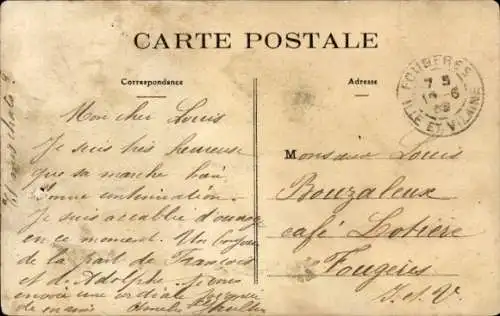 CARTE POSTALE
Correspondance
Adresse
FOUGERES
7 5
ILLE ET VILAINE
Mon cher Louis
Je suis très heureuse
que sa marche
bonne continuation.
Je suis accablée d'ouvrage
en ce moment. Un bonjour
de la part de François
et d'Adolphe. Je vous
envoie une cordiale poignée
de mains
Monsieur Louis
Bouzaleux
café Lotière
Fougères
I. et V.